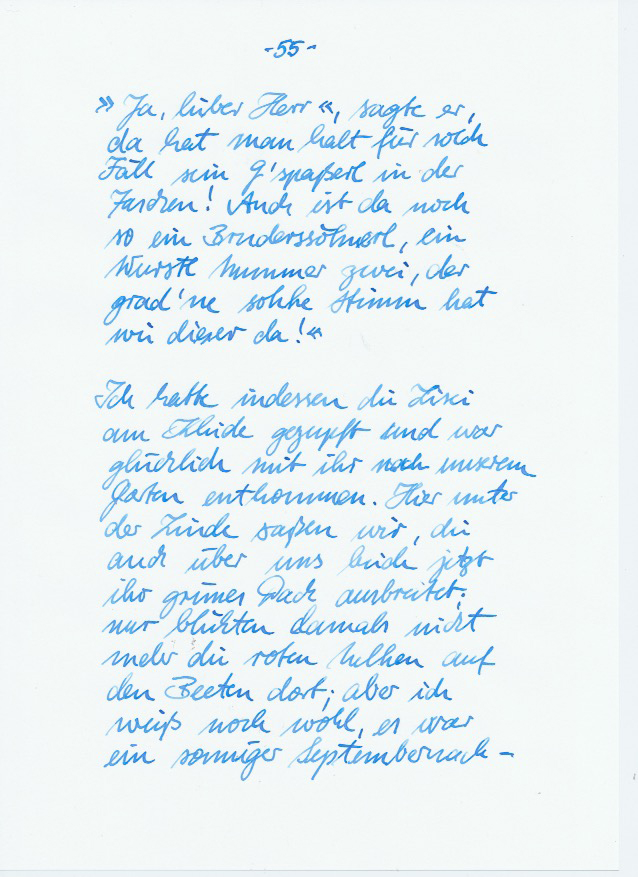 -55-
» Ja, lieber Herr «, sagte er,
da hat man halt für solch
Fäll sein G'spaßerl in der
Taschen! Auch ist da noch
so ein Bruderssöhnerl, ein
Wurstl Nummer zwei, der
grad 'ne solche Stimm hat
wie dieser da! «
Ich hatte indessen die Lisei
am Kleide gezupft und war
glücklich mit ihr nach unserem
Garten entkommen. Hier unter
der Linde saßen wir, die
auch über uns beide jetzt
ihr grünes Dach ausbreitet;
nur blühten damals nicht
mehr die roten Nelken auf
den Beeten dort; aber ich
weiß noch wohl, es war
ein sonniger Septembernach-